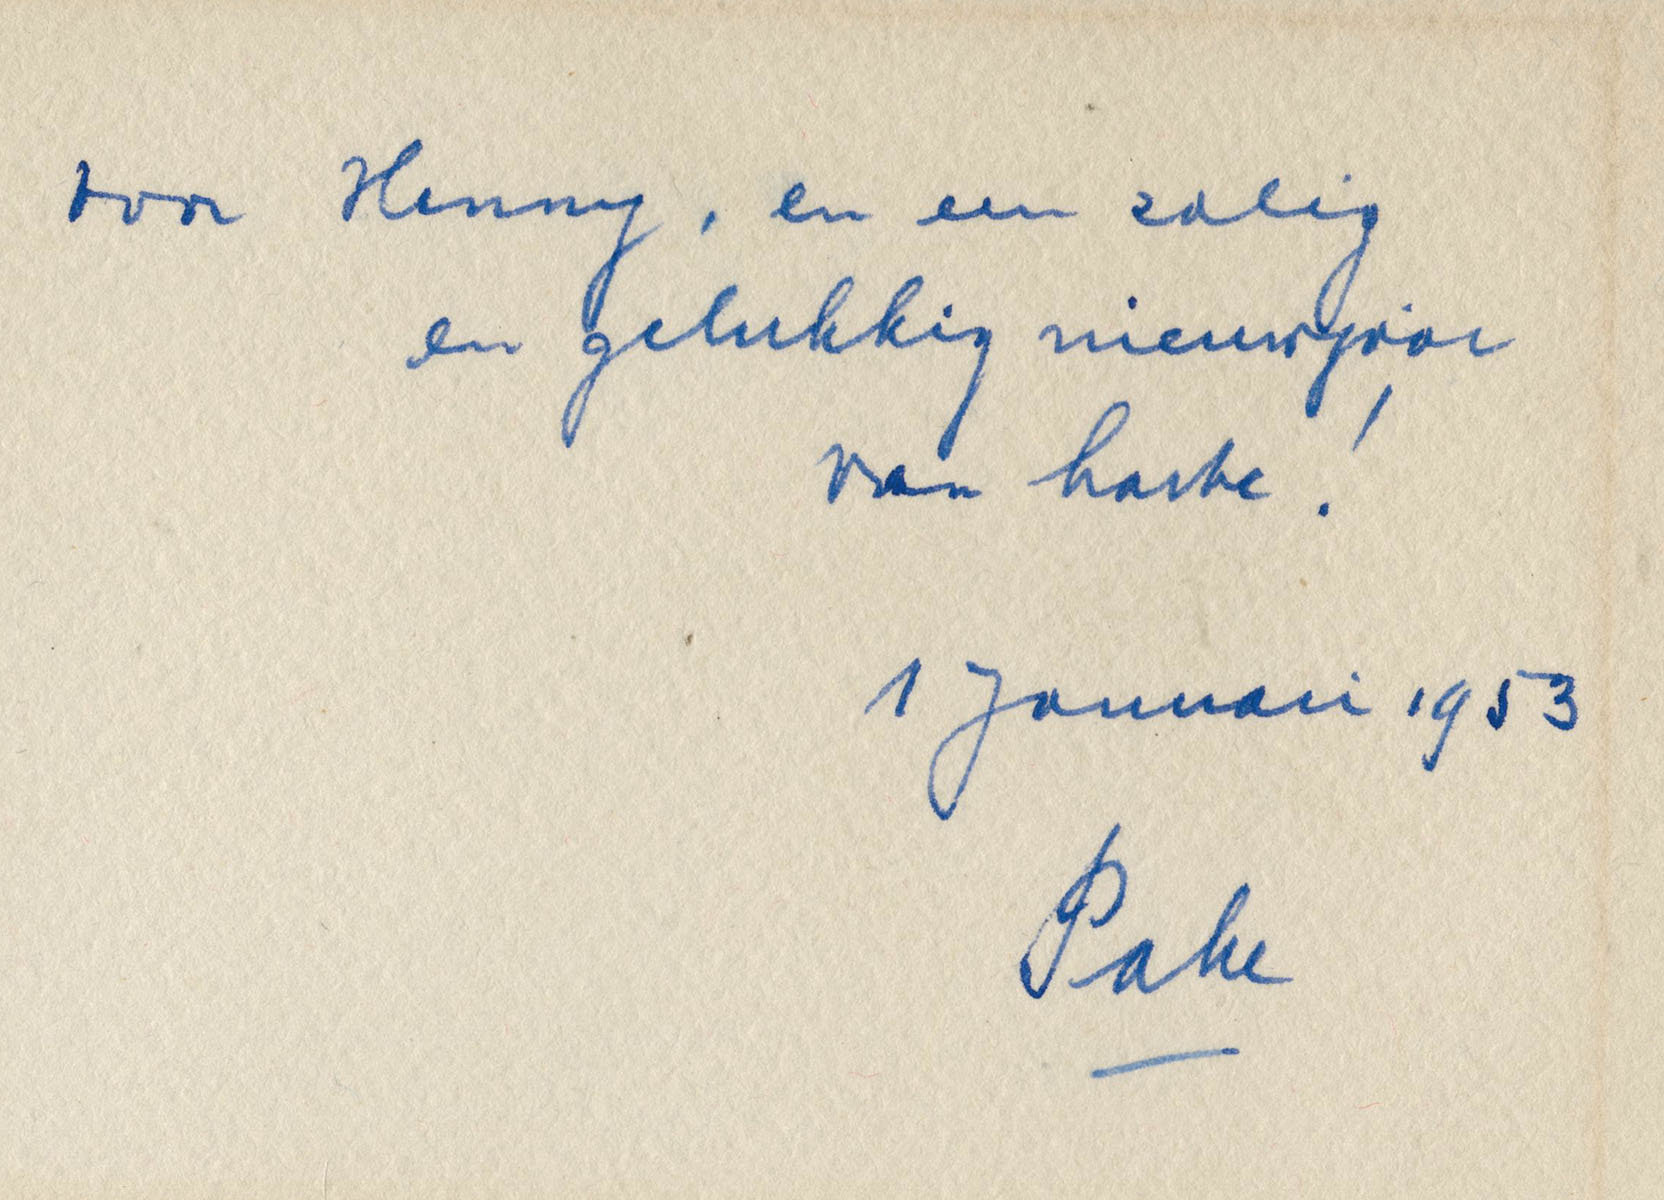 voor Henny, en een zalig
en gelukkig nieuwjaar
van harte!
1 Januari 1953
Pake